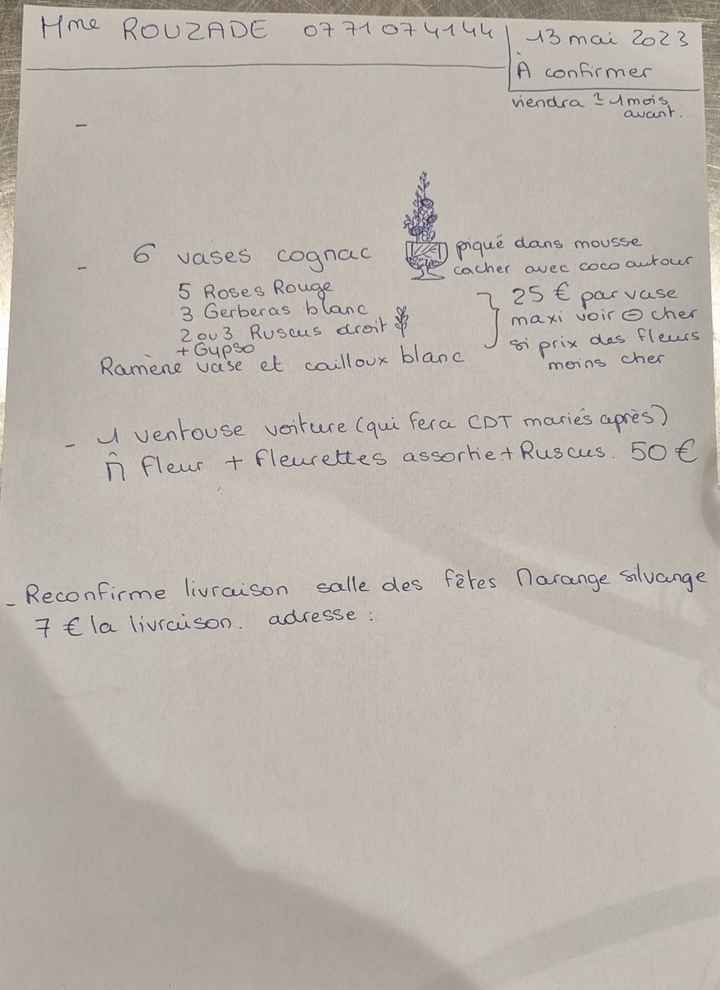 Mme ROUZADE 07 71 07 41 44
13 mai 2023
À confirmer
viendra ± 1 mois
avant.
-
- 6 vases cognac
piqué dans mousse
cacher avec coco autour
5 Roses Rouge
3 Gerberas blanc
2 ou 3 Ruscus droit
+ Gypso
Ramène vase et cailloux blanc
25 € par vase
maxi voir ⊖ cher
si prix des fleurs
moins cher
- 1 ventouse voiture (qui fera CDT mariés après)
m̂ fleur + fleurettes assortie + Ruscus. 50 €
- Reconfirme livraison salle des fêtes Marange silvange
7 € la livraison. adresse :